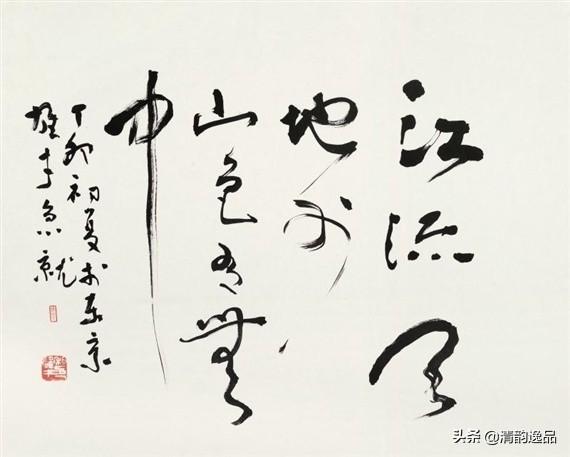 江流天
地外
山色有無
中
丁卯初夏於東京
雄才急就
头条 @清韵逸品